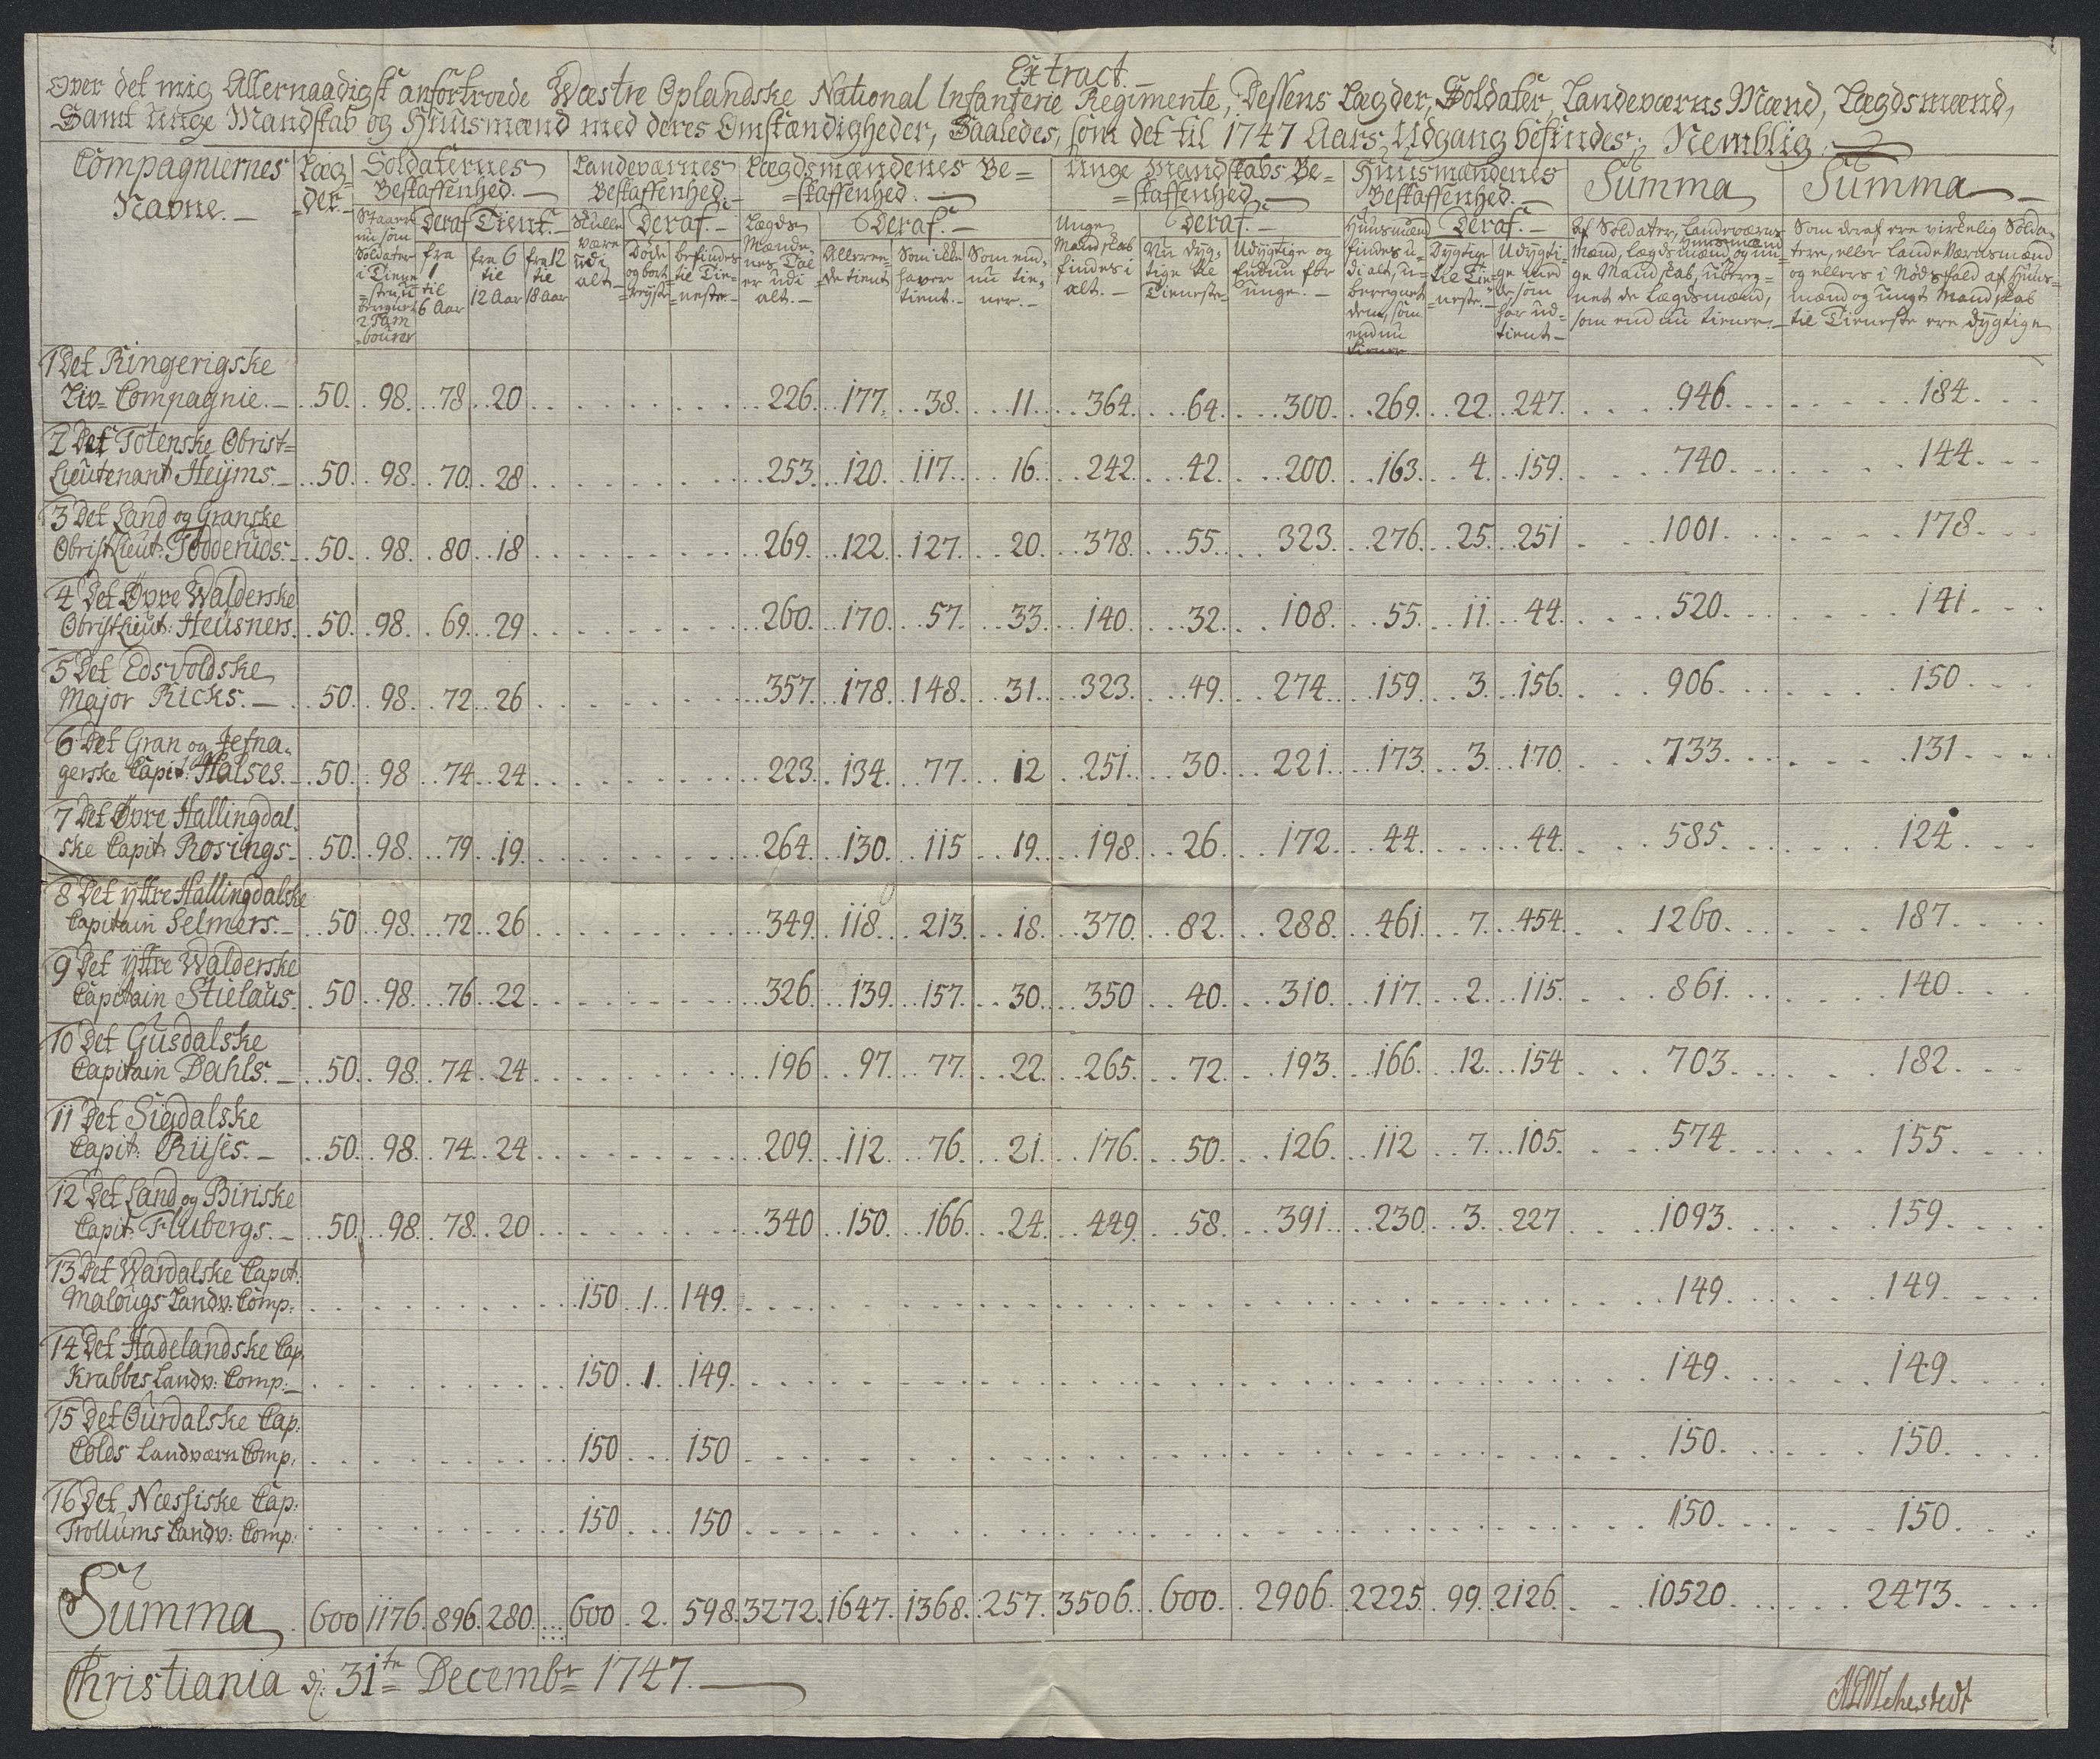 Extract. –
Over det mig Allernaadigst anfortroede Wæstre Oplandske National Infanterie Regimente, Dessens Lægder, Soldater, Landeværns Mænd, Lægdsmænd,
Samt Unge Mandskab og Huusmænd med deres Omstændigheder, Saaledes, som det til 1747 Aars Udgang befindes; Nemblig: –
Compagniernes Navne. –
Læg=
der. –
Soldaternes
Beskaffenhed. –
Landeværnes
Beskaffenhed. –
Lægdsmændenes Be=
=skaffenhed. –
Unge Mandskabs Be=
=skaffenhed. –
Huusmændenes
Beskaffenhed. –
Summa
Summa –
Staar
nu som
Soldater
i Tiene
=sten, u
beregnet
2 Tam
=bourer
Deraf Tient. –
fra
1
til
6 Aar
fra 6
til
12 Aar
fra 12
til
18 Aar
Skulle
være
udi
alt. –
Deraf. –
Døde
og bort
=reyste
befindes
til Tie=
neste. –
Lægds
Mænde
nes Tal
er udi
alt. –
Deraf. –
Allerre=
=de tient
Som ikke
haver
tient. –
Som end=
nu tie=
ner. –
Unge
Mandskab
findes i
alt. –
Deraf. –
Nu dyg=
tige til
Tieneste
Udygtige og
endnu for
unge. –
Huusmænd
findes u=
di alt, u=
beregnet
dem, som
endnu
tiener
Deraf. –
Dygtige
til Tie=
=neste. –
Udygti=
ge med
de som
har ud=
tient –
Af Soldater, Landeværns
Mænd, Lægdsmænd, Huusmænd og un=
ge Mandskab, ubereg=
net de Lægdsmænd,
som end nu tiener. –
Som deraf ere virkelig Solda=
tere, eller LandeVærnsmænd
og ellers i Nødsfald af Huus=
mænd og ungt Mandskab
til Tieneste ere dygtige
1 Det Ringerigske
Liv= Compagnie. – 50. 98. 78. 20 226. 177. 38. 11. 364. 64. 300. 269. 22. 247. 946. 184.
2 Det Totenske Obrist=
Lieutenant Heÿms. – 50. 98. 70. 28 253. 120. 117. 16. 242. 42. 200. 163. 4. 159. 740. 144.
3 Det Land og Granske
Obrist Lieut: Tødderuds. 50. 98. 80. 18 269. 122. 127. 20. 378. 55. 323. 276. 25. 251 1001. 178.
4 Det Øvre Walderske
Obrist Lieut: Heusners. 50. 98. 69. 29 260. 170. 57. 33. 140. 32. 108. 55. 11. 44. 520. 141.
5 Det Edsvoldske
Major Ricks. – 50. 98. 72. 26 357. 178. 148. 31. 323. 49. 274. 159 3. 156. 906. 150
6 Det Gran og Jefna=
gerske Capit: Halses. – 50. 98 74. 24 223. 134. 77. 12 251. 30. 221. 173. 3. 170. 733. 131
7 Det Øvre Hallingdal=
ske Capit: Rosings. 50. 98. 79. 19. 264. 130. 115 19. 198. 26. 172. 44. 44. 585. 124
8 Det ÿttre Hallingdalske
Capitain Selmers. – 50 98. 72. 26 349. 118. 213. 18. 370. 82. 288. 461. 7. 454. 1260. 187.
9 Det ÿttre Walderske
Capitain Stielaus. 50 98. 76. 22 326. 139. 157. 30. 350 40. 310. 117. 2. 115. 861. 140
10 Det Gusdalske
Capitain Dahls. – 50. 98. 74. 24 196 97. 77. 22. 265. 72. 193. 166. 12. 154 703. 182.
11 Det Sigdalske
Capit: Riises. – 50. 98. 74. 24 209. 112. 76. 21. 176. 50. 126. 112 7. 105. 574. 155.
12 Det Land og Biriske
Capit: Flubergs. – 50. 98. 78. 20 340 150. 166. 24. 449. 58. 391. 230. 3. 227 1093. 159.
13 Det Wardalske Capit:
Malougs Landv: Comp: 150 1. 149. 149. 149.
14 Det Hadelandske Cap.
Krabbes Landv: Comp: – 150 1. 149. 149. 149.
15 Det Ourdalske Cap:
Colds Landværn Comp: 150 150 150. 150.
16 Det Næssiske Cap:
Trollums Landv: Comp: 150 150 150. 150.
Summa 600 1176. 896. 280. 600 2. 598. 3272. 1647. 1368. 257. 3506. 600. 2906. 2225. 99. 2126. 10520. 2473.
Christiania d: 31te Decembr 1747. –